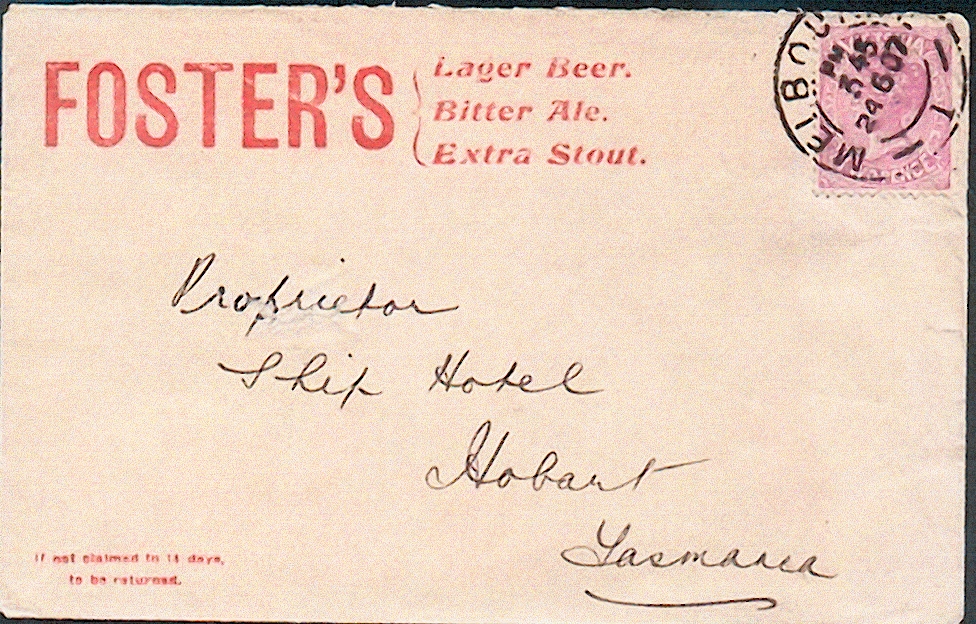 FOSTER'S
Lager Beer.
Bitter Ale.
Extra Stout.
MELBOU
1
PM
3 45
24 6 07
VICTORIA
Proprietor
Ship Hotel
Hobart
Tasmania
If not claimed in 14 days,
to be returned.